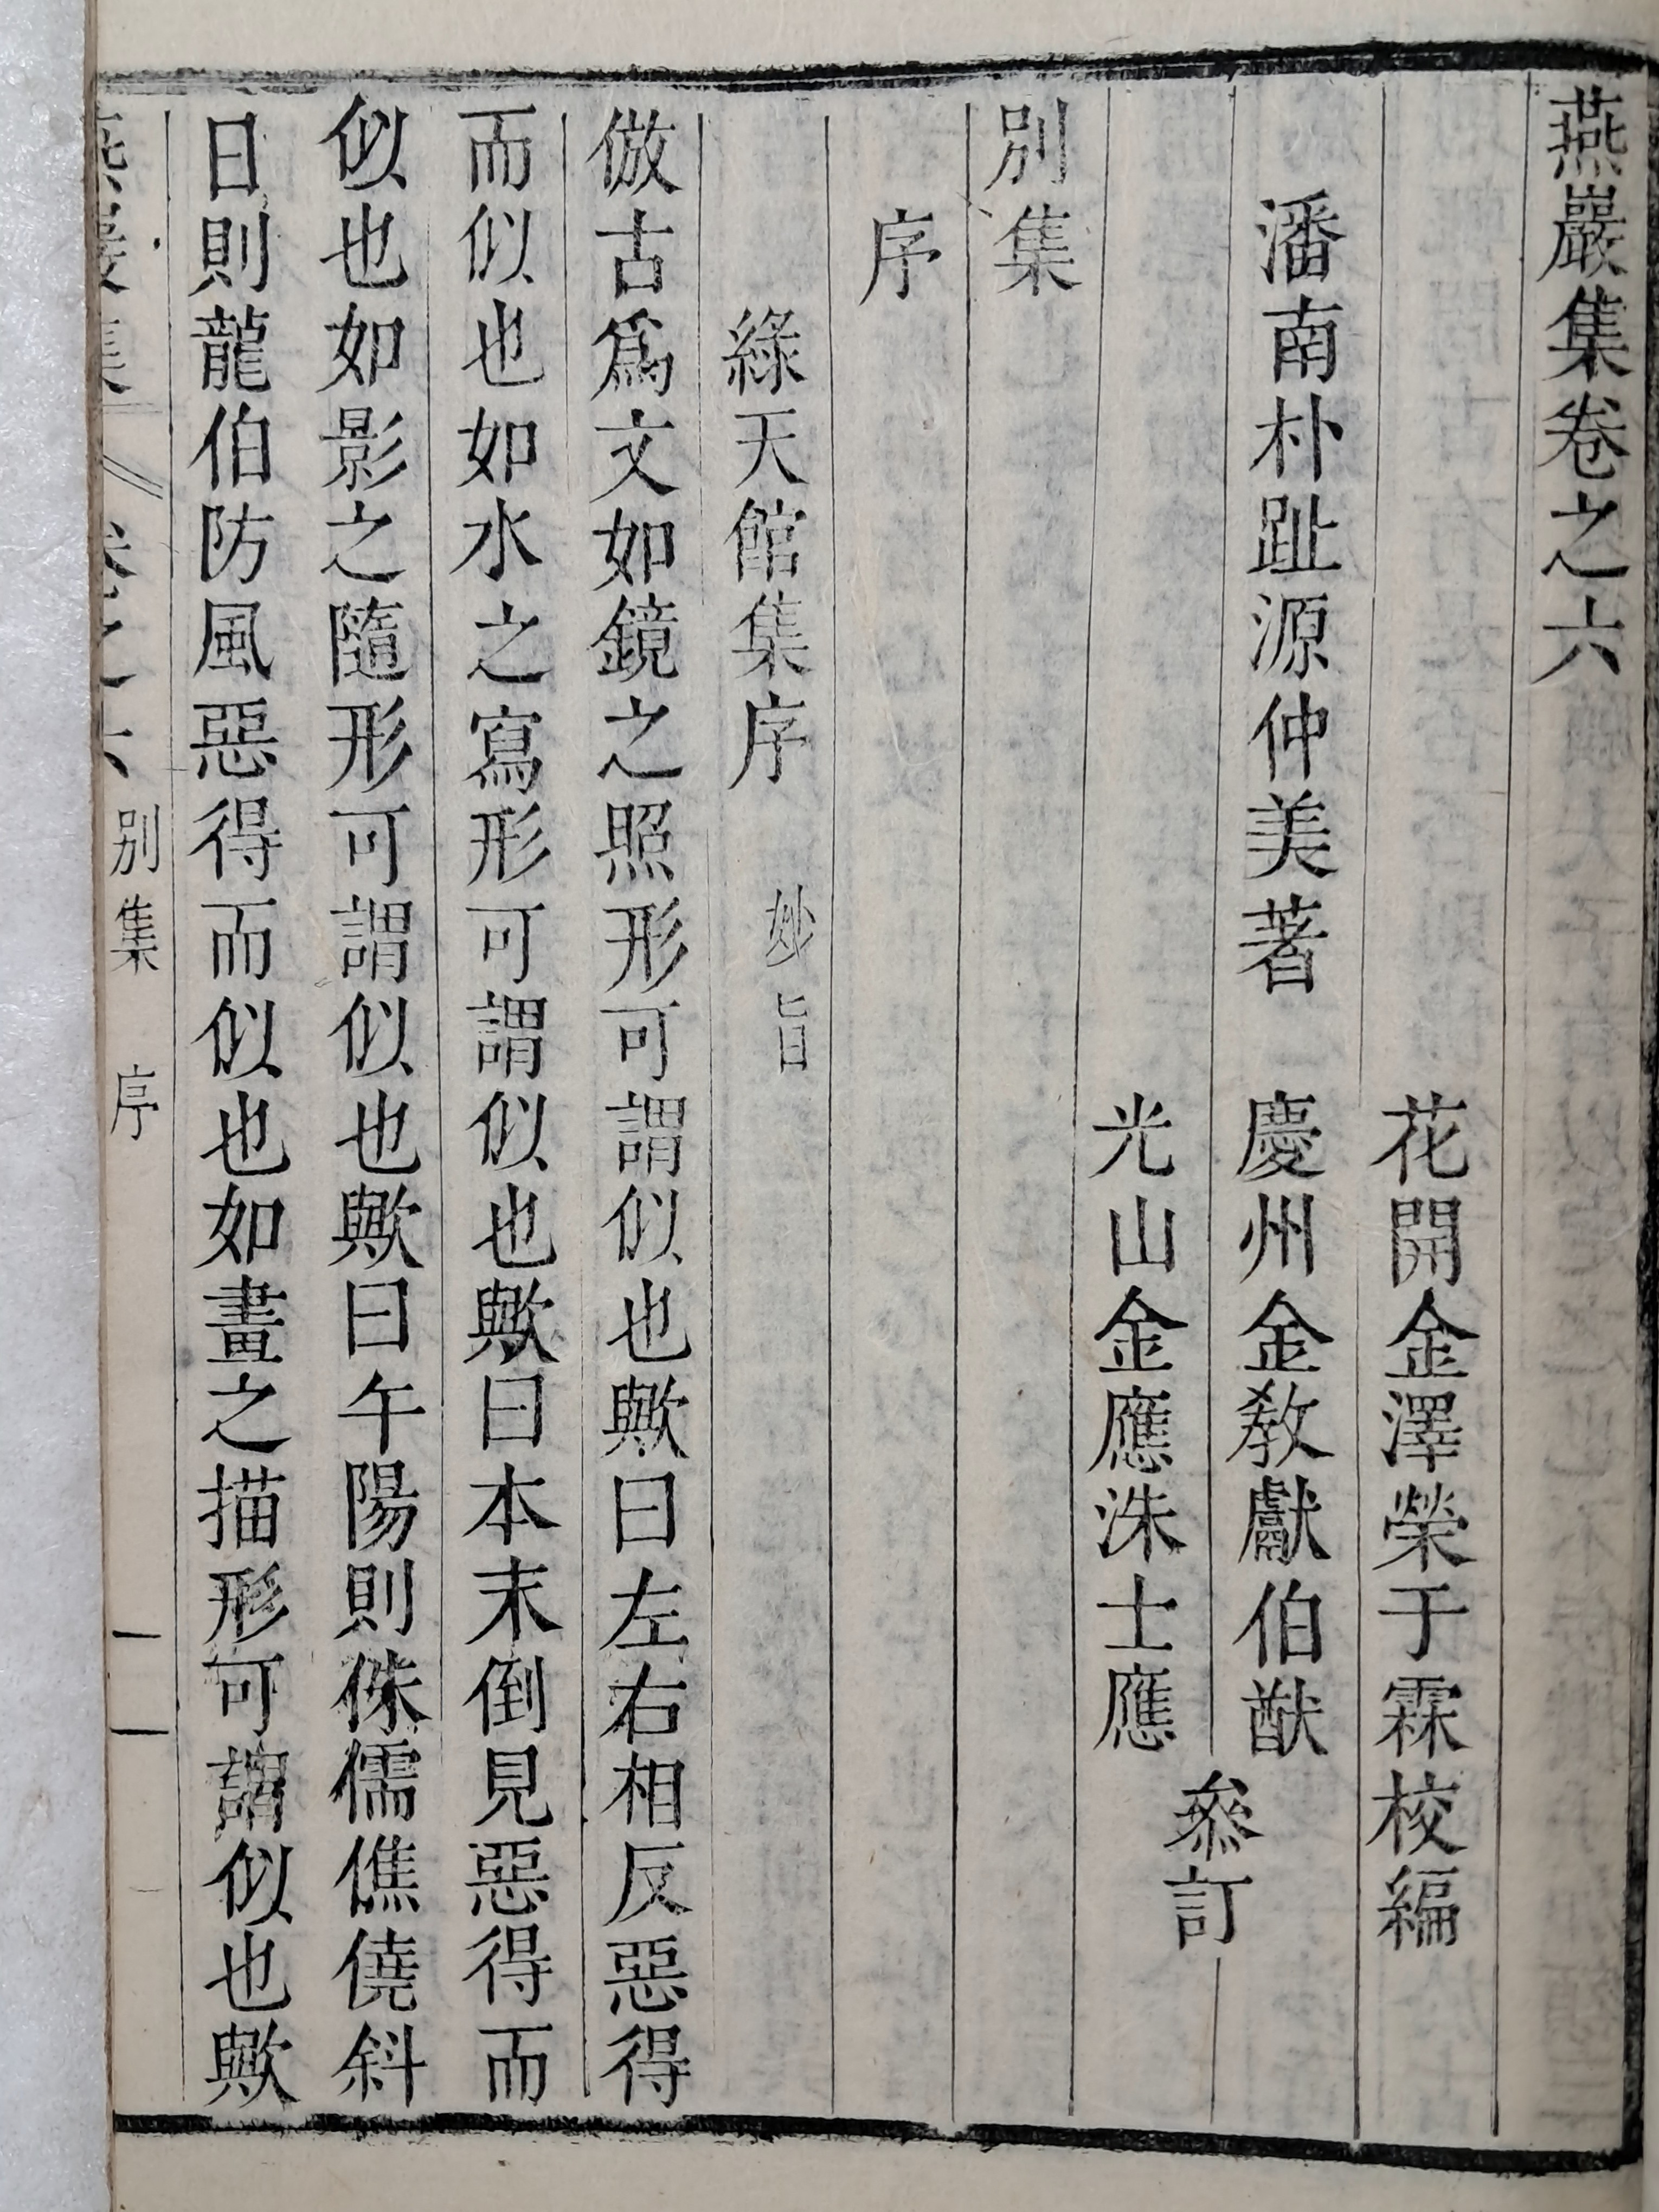 燕巖集卷之六
花開金澤榮于霖校編
潘南朴趾源仲美著
慶州金敎獻伯猷
光山金應洙士應
叅訂
別集
序
綠天館集序 妙旨
倣古爲文如鏡之照形可謂似也歟曰左右相反惡得
而似也如水之寫形可謂似也歟曰本末倒見惡得而
似也如影之隨形可謂似也歟曰午陽則侏儒僬僥斜
日則龍伯防風惡得而似也如畫之描形可謂似也歟
燕巖集 卷之六 別集 序 一